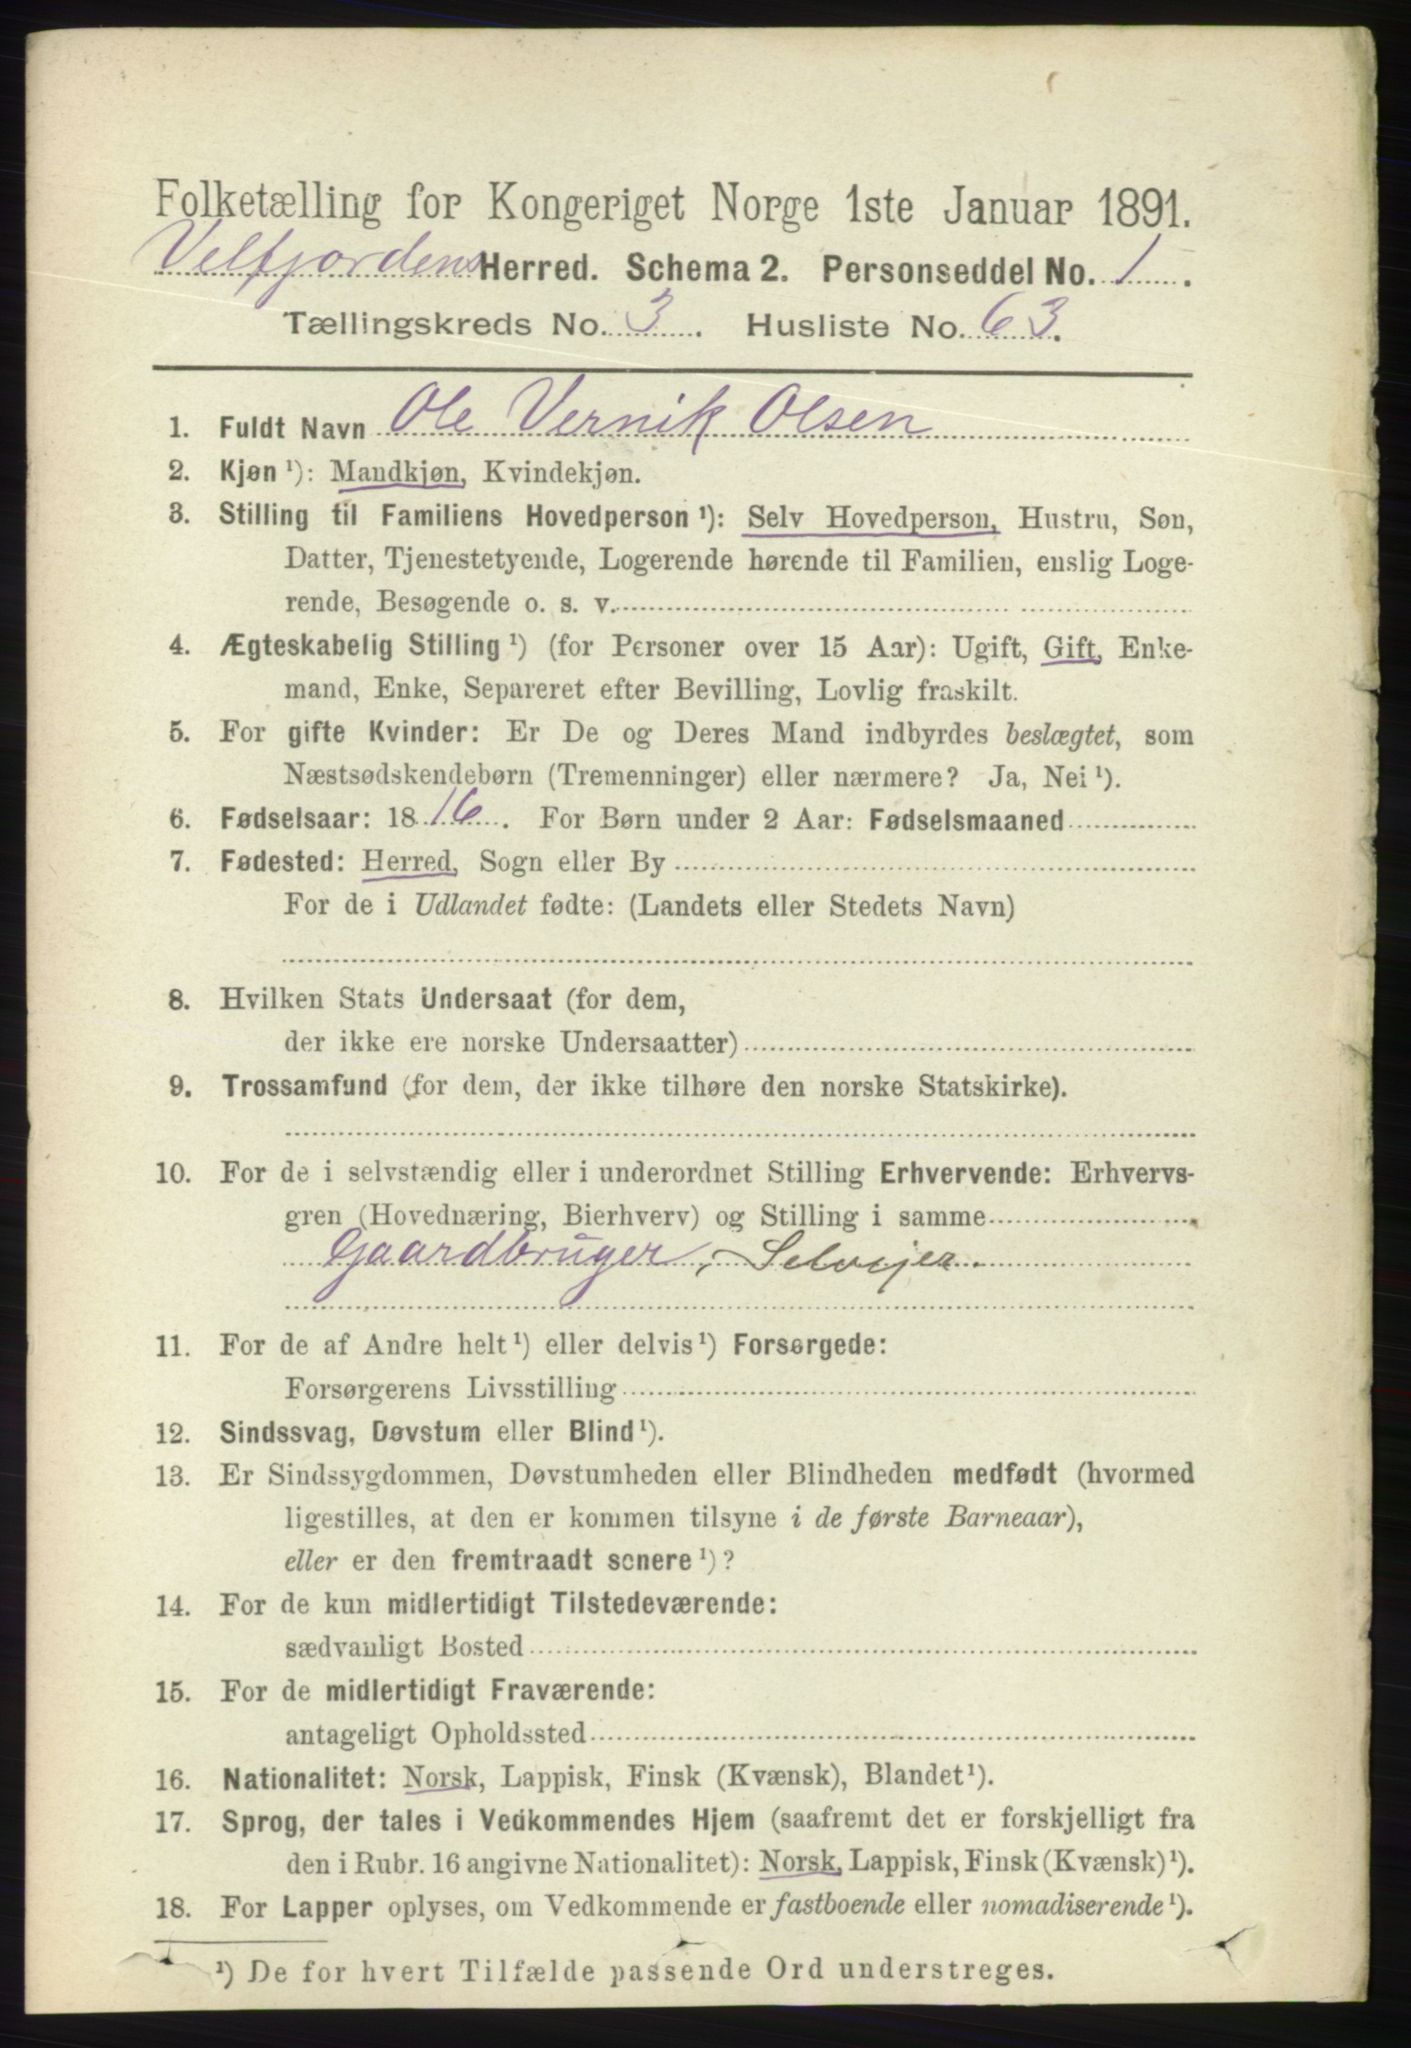 Folketælling for Kongeriget Norge 1ste Januar 1891.
Velfjordens Herred. Schema 2. Personseddel No. 1.
Tællingskreds No. 3. Husliste No. 63.
1. Fuldt Navn Ole Vernik Olsen
2. Kjøn¹): Mandkjøn, Kvindekjøn.
3. Stilling til Familiens Hovedperson¹): Selv Hovedperson, Hustru, Søn,
Datter, Tjenestetyende, Logerende hørende til Familien, enslig Loge-
rende, Besøgende o. s. v.
4. Ægteskabelig Stilling¹) (for Personer over 15 Aar): Ugift, Gift, Enke-
mand, Enke, Separeret efter Bevilling, Lovlig fraskilt.
5. For gifte Kvinder: Er De og Deres Mand indbyrdes beslægtet, som
Næstsødskendebørn (Tremenninger) eller nærmere? Ja, Nei¹).
6. Fødselsaar: 1816. For Børn under 2 Aar: Fødselsmaaned
7. Fødested: Herred, Sogn eller By
For de i Udlandet fødte: (Landets eller Stedets Navn)
8. Hvilken Stats Undersaat (for dem,
der ikke ere norske Undersaatter)
9. Trossamfund (for dem, der ikke tilhøre den norske Statskirke).
10. For de i selvstændig eller i underordnet Stilling Erhvervende: Erhvervs-
gren (Hovednæring, Bierhverv) og Stilling i samme
Gaardbruger, Selvejer.
11. For de af Andre helt¹) eller delvis¹) Forsørgede:
Forsørgerens Livsstilling
12. Sindssvag, Døvstum eller Blind¹).
13. Er Sindssygdommen, Døvstumheden eller Blindheden medfødt (hvormed
ligestilles, at den er kommen tilsyne i de første Barneaar),
eller er den fremtraadt senere¹)?
14. For de kun midlertidigt Tilstedeværende:
sædvanligt Bosted
15. For de midlertidigt Fraværende:
antageligt Opholdssted
16. Nationalitet: Norsk, Lappisk, Finsk (Kvænsk), Blandet¹).
17. Sprog, der tales i Vedkommendes Hjem (saafremt det er forskjelligt fra
den i Rubr. 16 angivne Nationalitet): Norsk, Lappisk, Finsk (Kvænsk)¹).
18. For Lapper oplyses, om Vedkommende er fastboende eller nomadiserende¹).
¹) De for hvert Tilfælde passende Ord understreges.